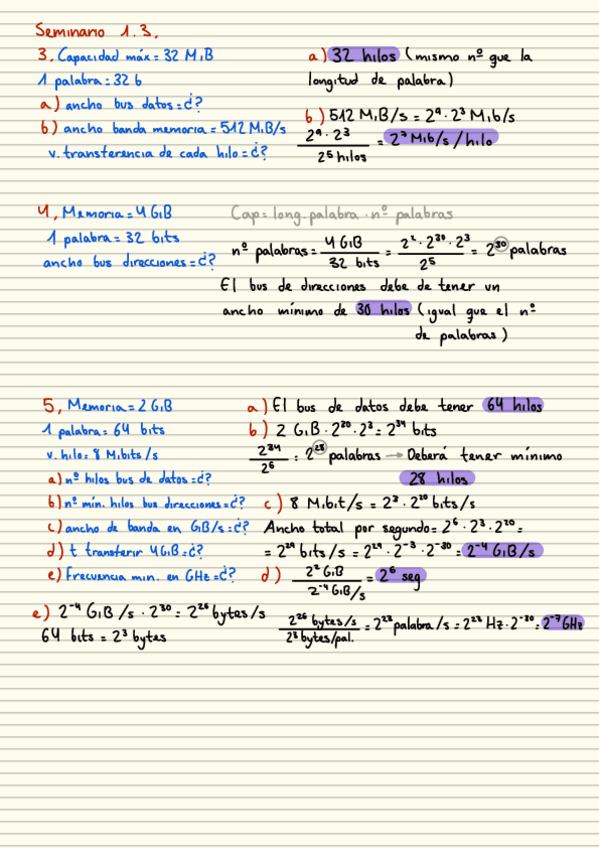 Seminario 1.3.
3. Capacidad máx = 32 MiB
1 palabra = 32 b
a) ancho bus datos = ¿?
b) ancho banda memoria = 512 MiB/s
v. transferencia de cada hilo = ¿?
a) 32 hilos (mismo nº que la
longitud de palabra)
b) 512 MiB/s = 2⁹ · 2³ Mib/s
2⁹ · 2³ / 2⁵ hilos = 2⁷ Mib/s/hilo
4. Memoria = 4 GiB
1 palabra = 32 bits
ancho bus direcciones = ¿?
Cap = long. palabra · nº palabras
nº palabras = 4 GiB / 32 bits = 2² · 2³⁰ · 2³ / 2⁵ = 2³⁰ palabras
El bus de direcciones debe de tener un
ancho mínimo de 30 hilos (igual que el nº
de palabras)
5. Memoria = 2 GiB
1 palabra = 64 bits
v. hilo = 8 Mibits/s
a) nº hilos bus de datos = ¿?
b) nº mín. hilos bus direcciones = ¿?
c) ancho de banda en GiB/s = ¿?
d) t transferir 4GiB = ¿?
e) Frecuencia min. en GHz = ¿?
a) El bus de datos debe tener 64 hilos
b) 2 GiB · 2³⁰ · 2³ = 2³⁴ bits
2³⁴ / 2⁶ = 2²⁸ palabras → Deberá tener mínimo
28 hilos
c) 8 Mibit/s = 2³ · 2²⁰ bits/s
Ancho total por segundo = 2⁶ · 2³ · 2²⁰ =
= 2²⁹ bits/s = 2²⁹ · 2⁻³ · 2⁻³⁰ = 2⁻⁴ GiB/s
d) 2² GiB / 2⁻⁴ GiB/s = 2⁶ seg
e) 2⁻⁴ GiB/s · 2³⁰ = 2²⁶ bytes/s
64 bits = 2³ bytes
2²⁶ bytes/s / 2³ bytes/pal. = 2²³ palabra/s = 2²³ Hz · 2⁻³⁰ = 2⁻⁷ GHz